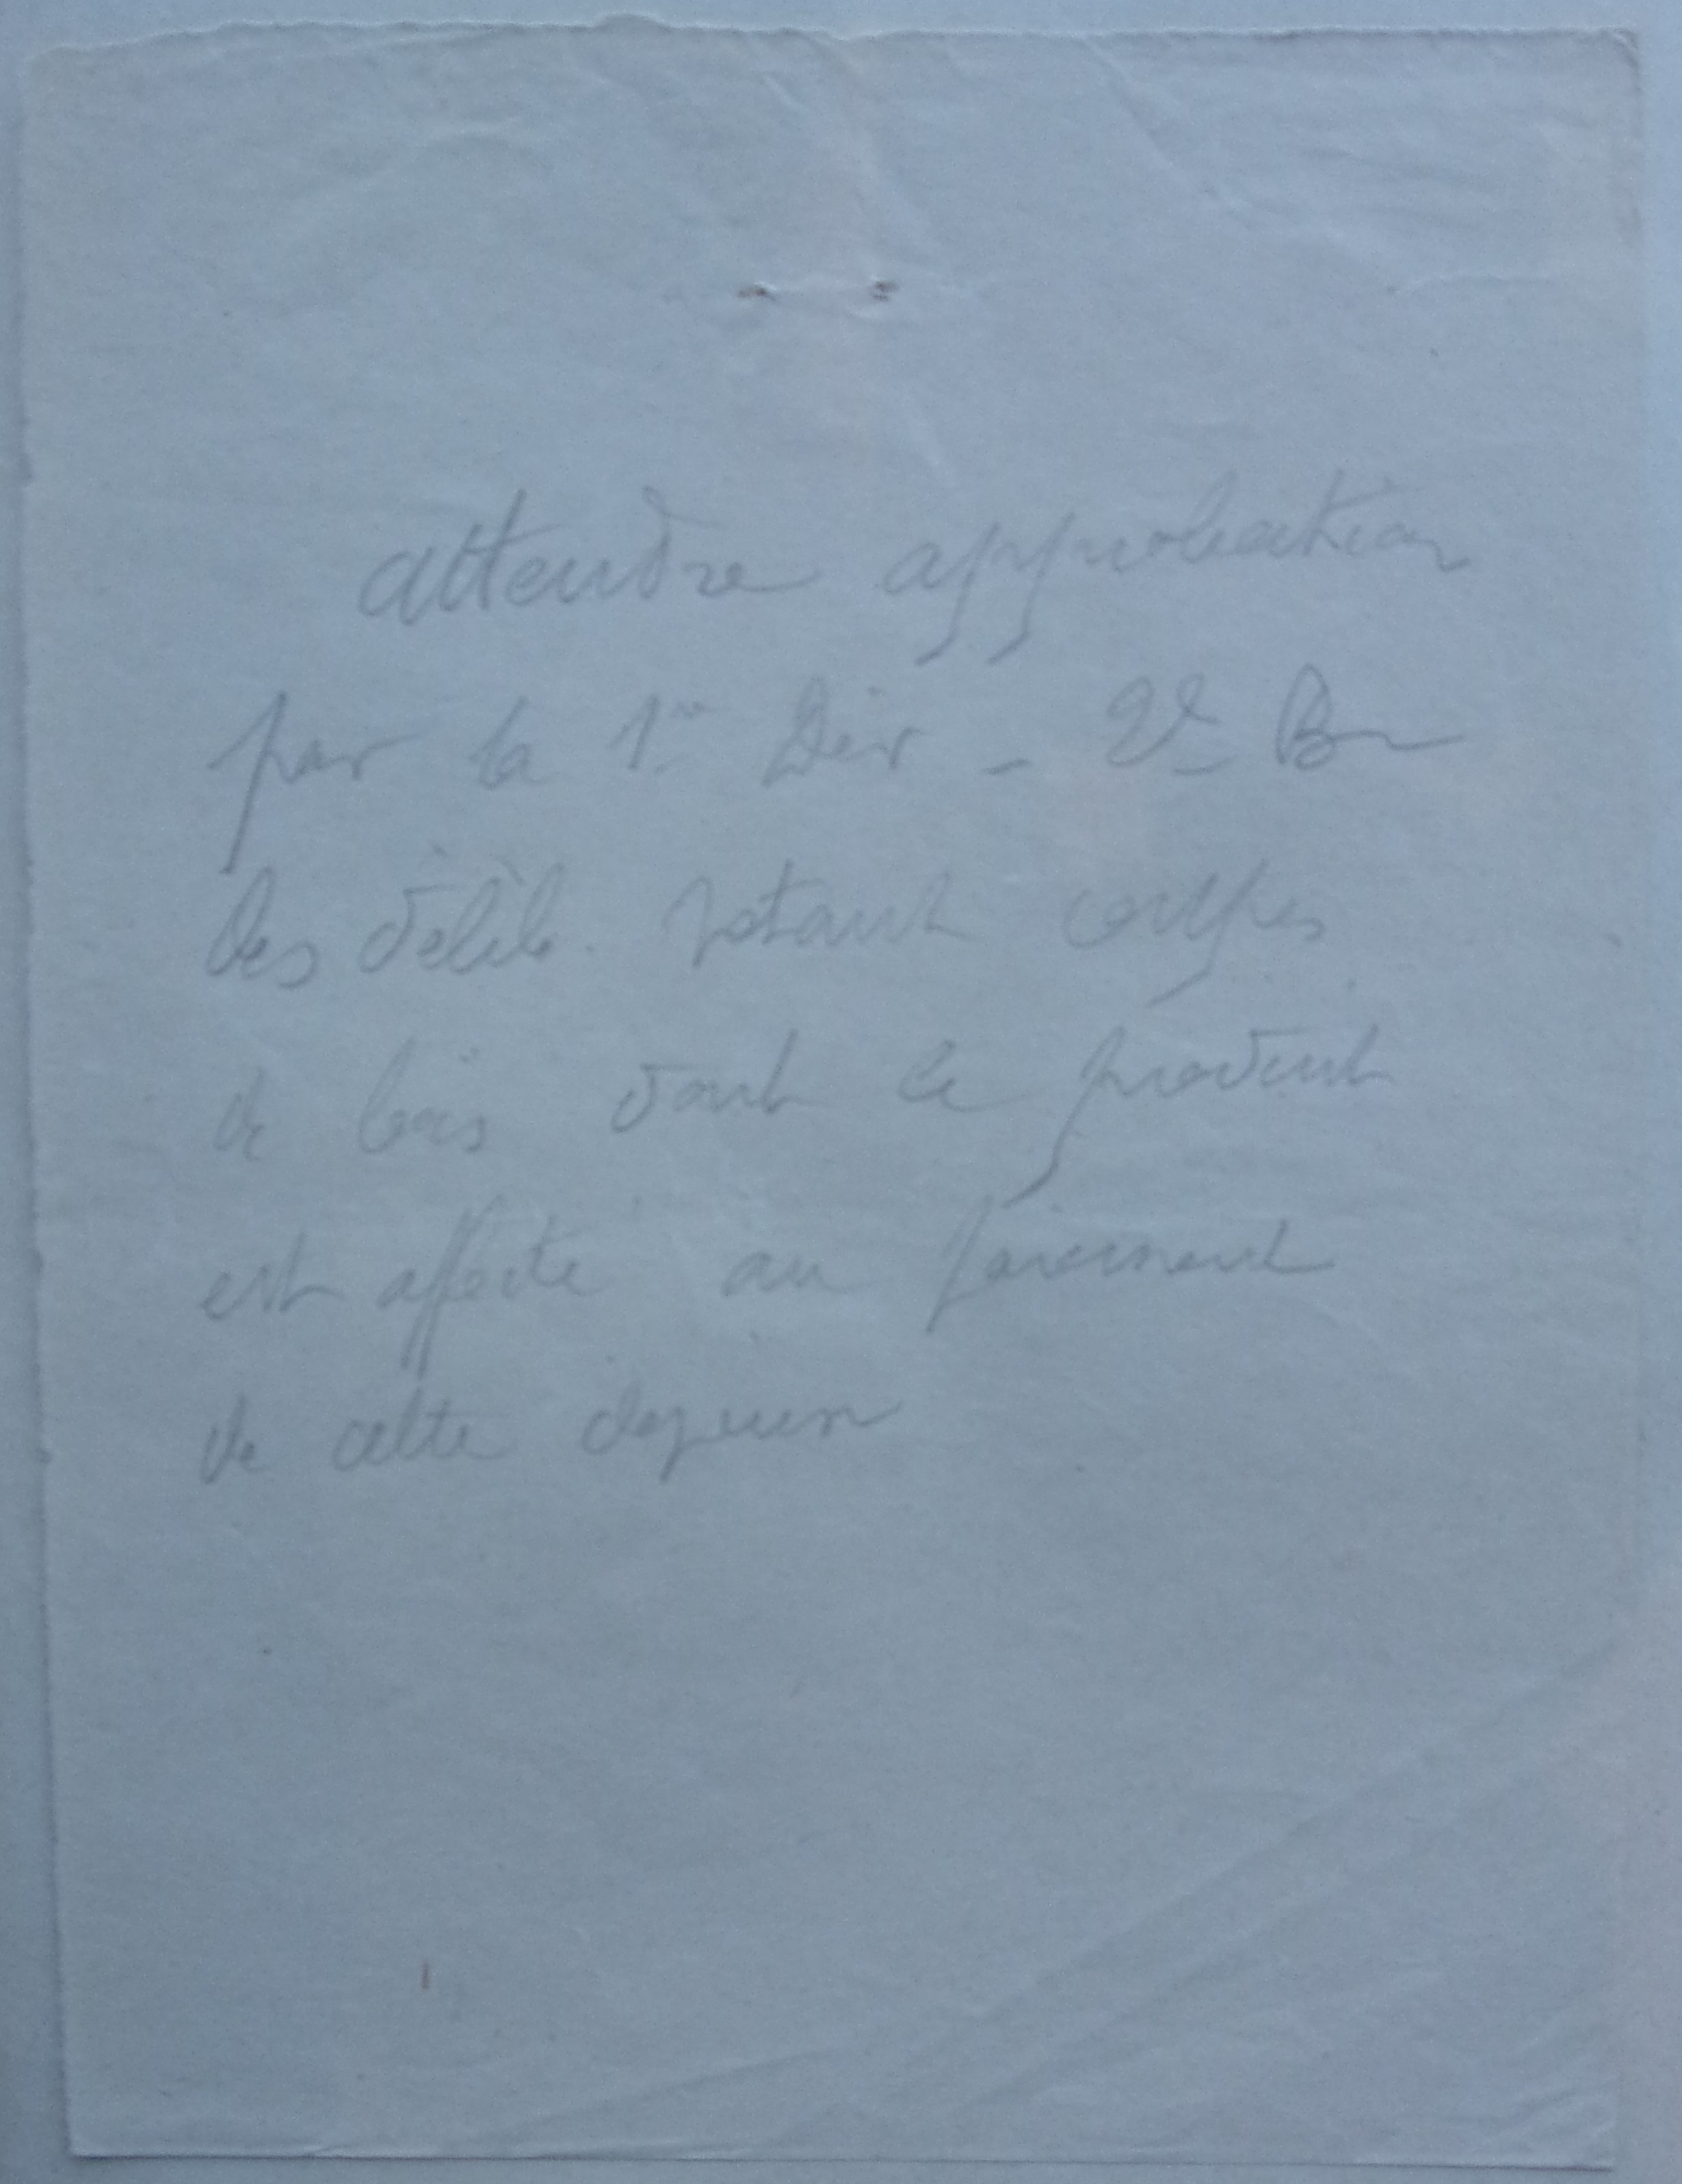 attendre approbation
par la 1re Div - 2e Bu
des délib. votant coupes
de bois dont le produit
est affecté au paiement
de cette dépense